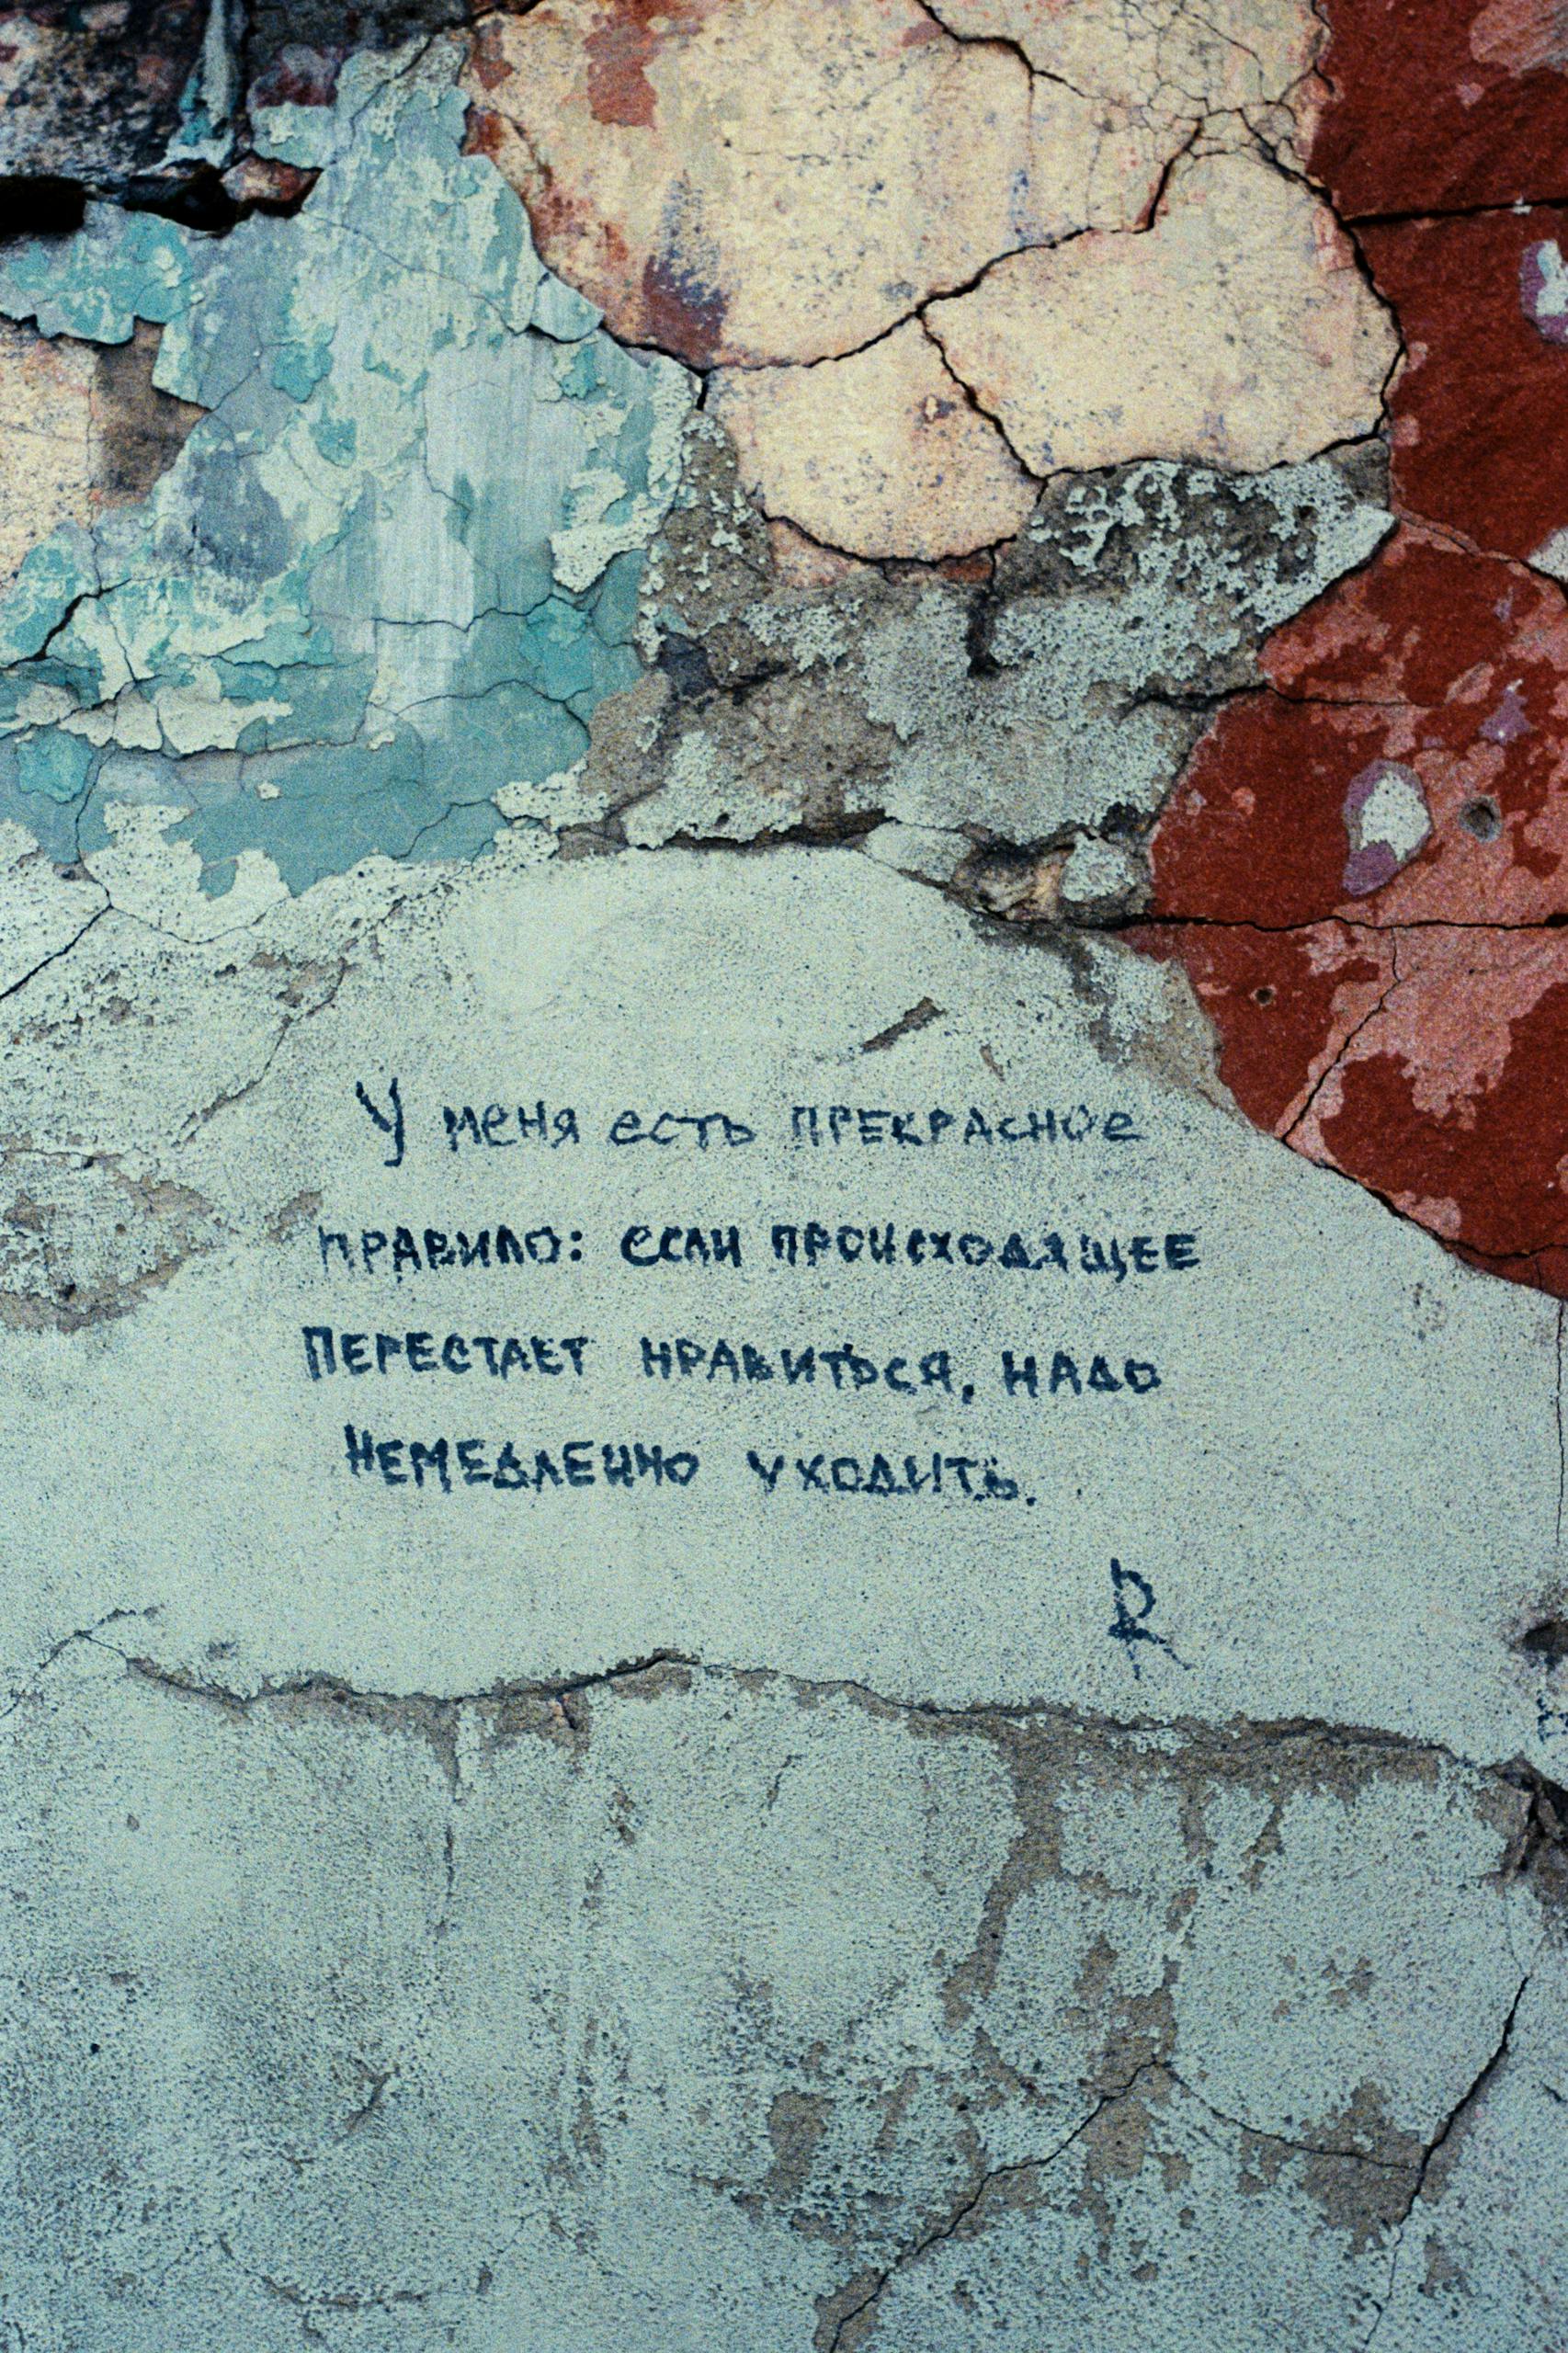 У меня есть ПРЕКРАСНОЕ
ПРАВИЛО: ЕСЛИ ПРОИСХОДЯЩЕЕ
ПЕРЕСТАЕТ НРАВИТЬСЯ, НАДО
НЕМЕДЛЕННО УХОДИТЬ.
R